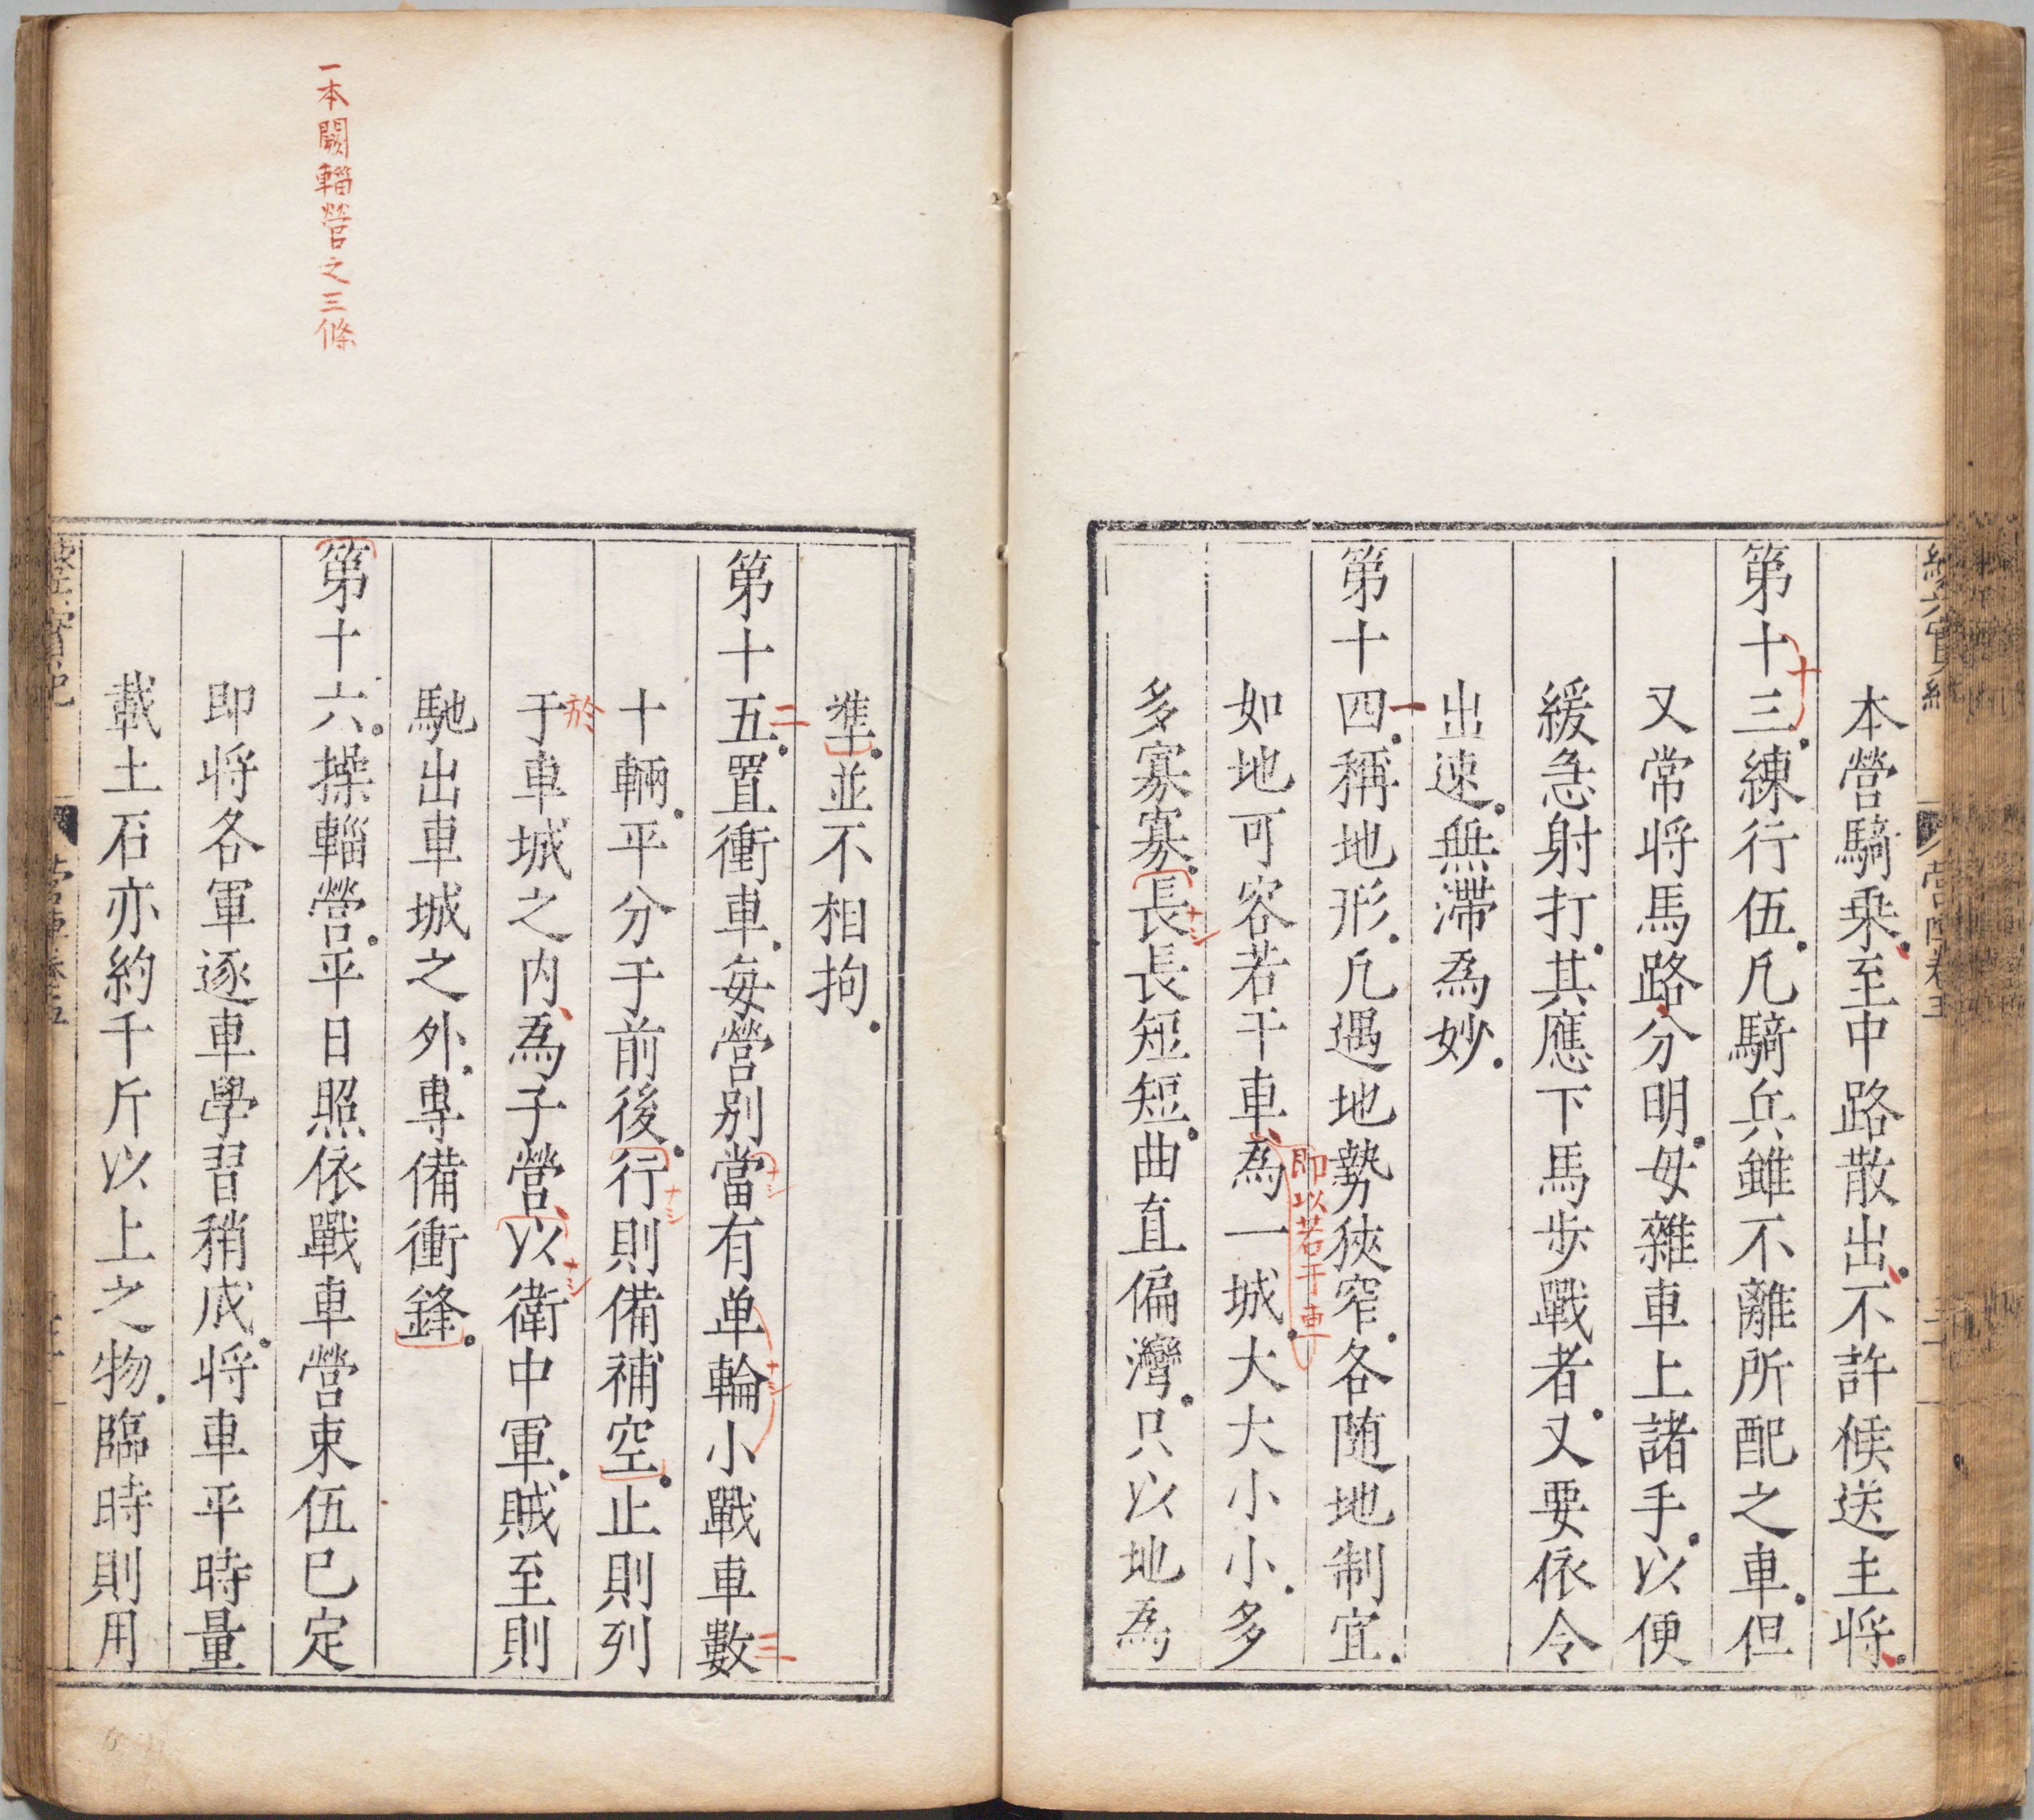 本營騎乗至中路散出不許候送主将
第十三練行伍凢騎兵雖不離所配之車但
又常将馬路分明毋雜車上諸手以便
緩急射打其應下馬步戰者又要依令
出速無滯爲妙
第十四稱地形凢遇地勢狹窄各随地制宜
如地可容若干車爲一城大大小小多
多寡寡長長短短曲直偏灣只以地爲
十
一
即以若干車
ナシ
準並不相拘
第十五置衝車每營別當有单輪小戰車數
十輛平分于前後行則備補空止則列
于車城之内爲子營以衛中軍賊至則
馳出車城之外專備衝鋒
第十六操輜營平日照依戰車營束伍巳定
即将各軍逐車學習稍成将車平時量
載土石亦約千斤以上之物臨時則用
二
ナシ
ナシ
三
ナシ
於
ナシ
一本闕輜營之三條